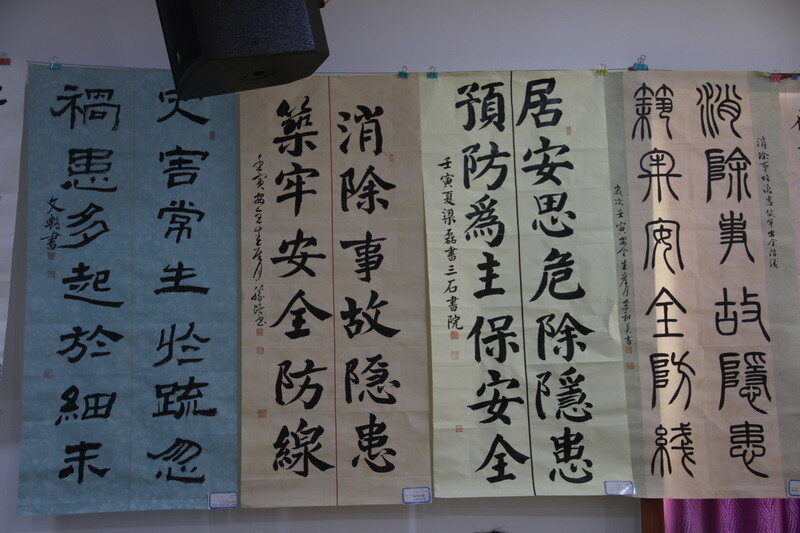 消除事故隱患
筑牢安全防线
消除事故隐患筑牢安全防线
歲次壬寅安全生產月
居安思危除隱患
預防爲主保安全
壬寅夏梁磊書三石書院
消除事故隐患
築牢安全防線
壬寅安全生產月
害常生於疏忽
禍患多起於細末